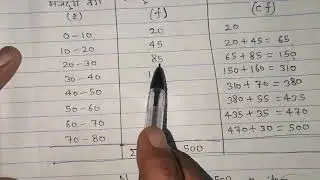 मजदूरी वर्ग (f) (cf)
(₹)
0-10 20 20
10-20 45 20+45 = 65
20-30 85 65+85 = 150
30-40 1 150+160 = 310
40-50 310+70 = 380
50-60 380+55 = 435
60-70 435+35 = 470
70-80 470+30 = 500
Σ 500
N 500